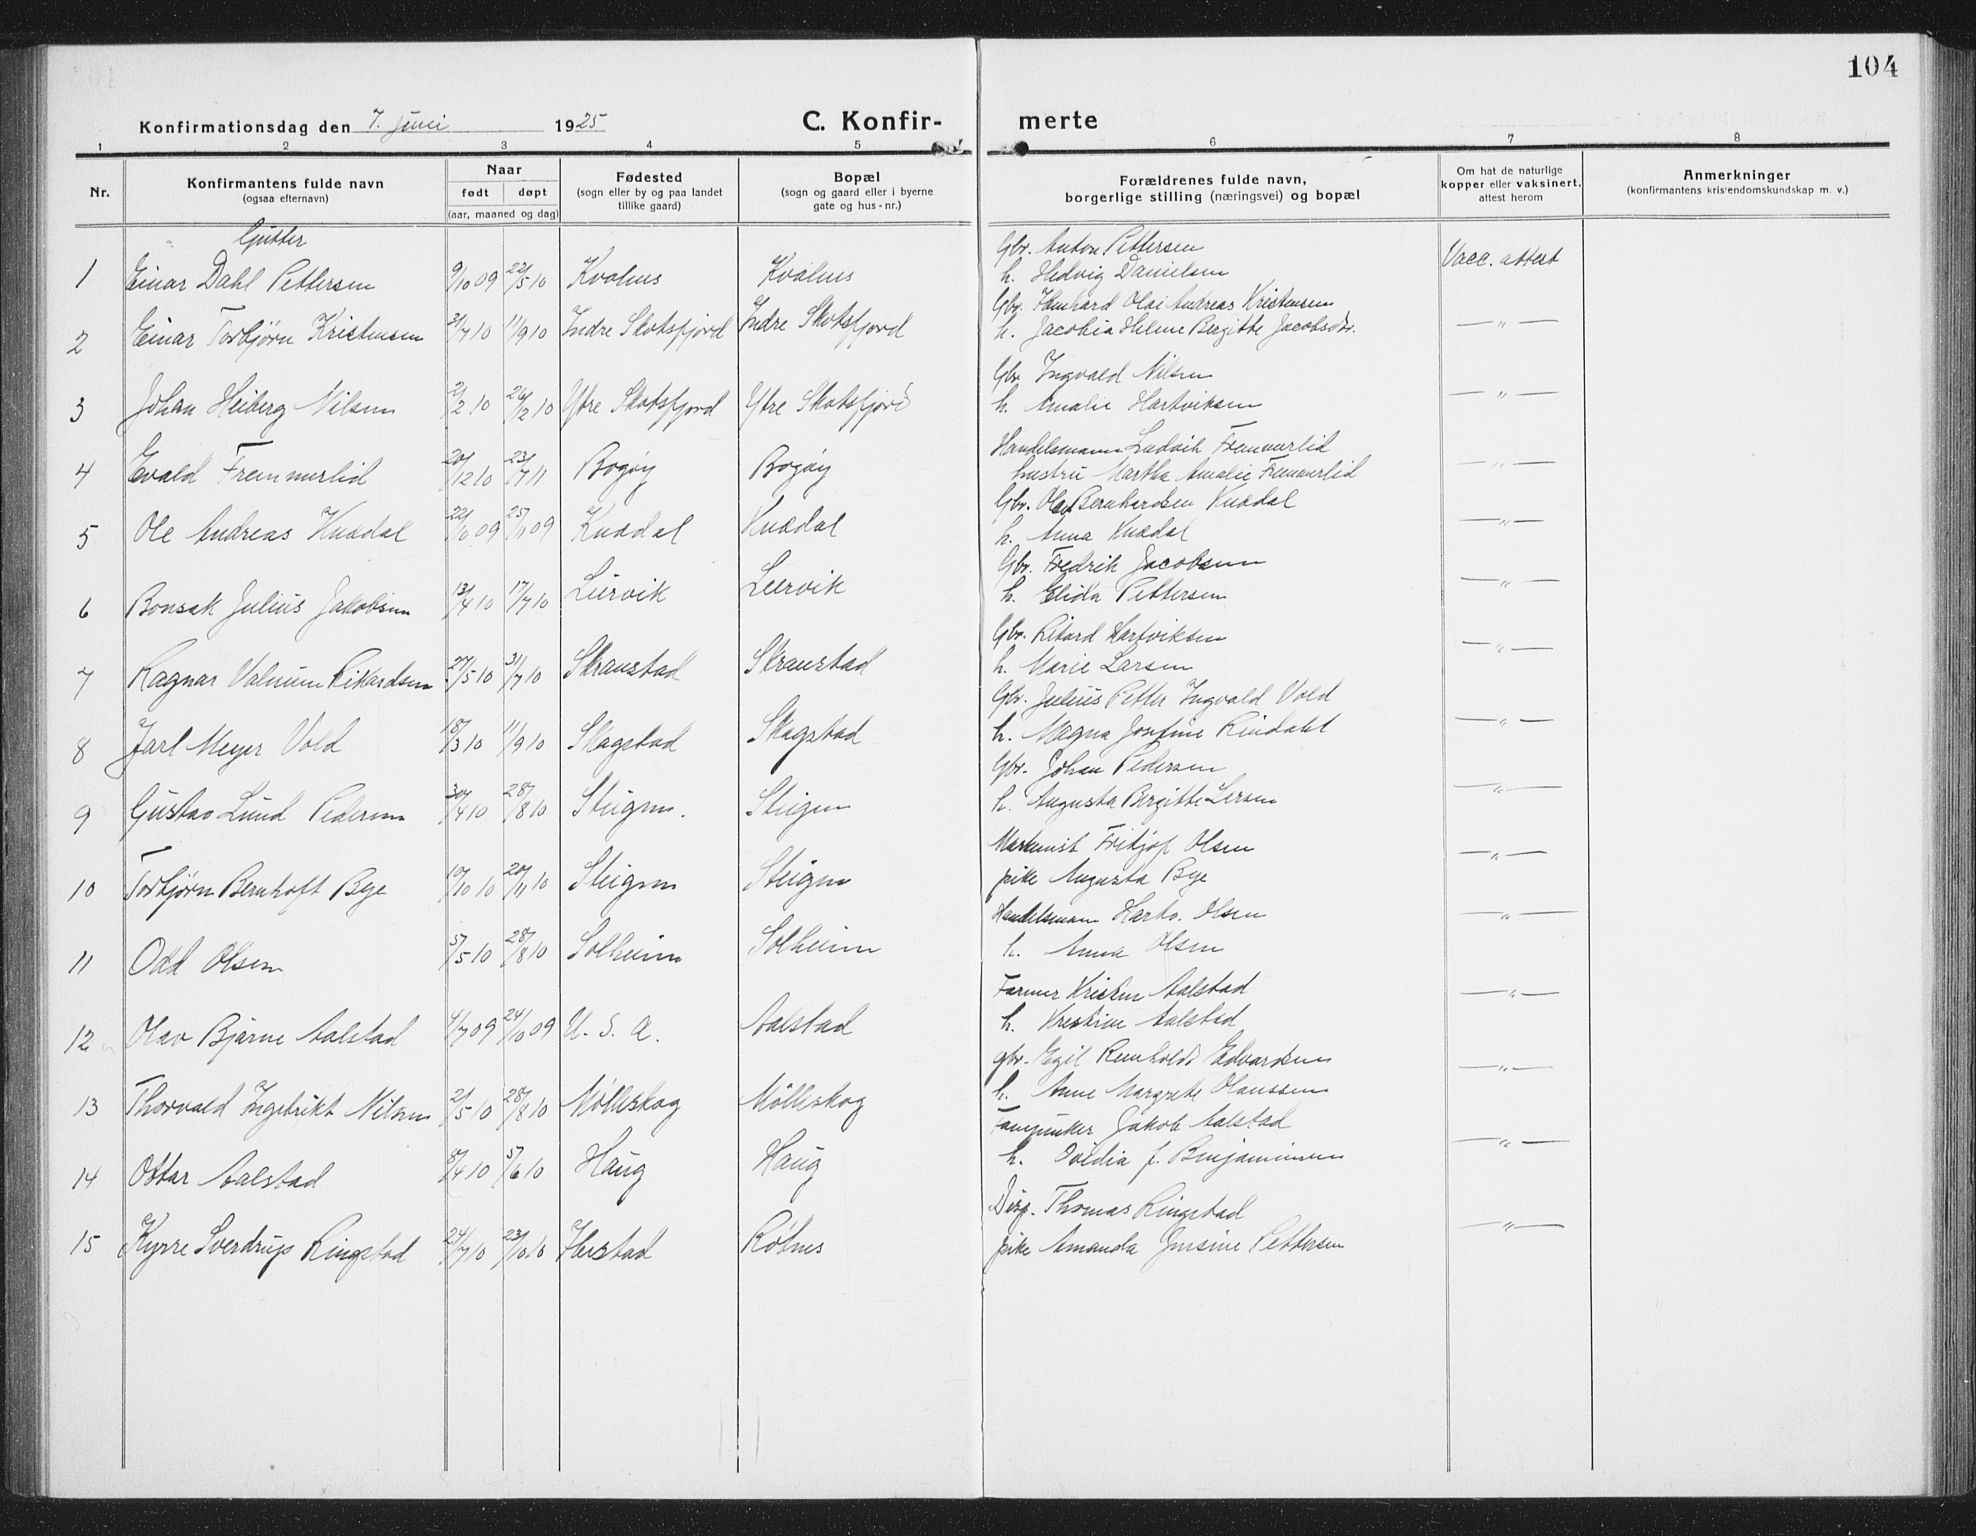 104
Konfirmationsdag den 7. Juni 1925
C. Konfir- merte
1 2 3 4 5 6 7 8
Nr.
Konfirmantens fulde navn
(ogsaa efternavn)
Naar
født døpt
(aar, maaned og dag)
Fødested
(sogn eller by og paa landet
tillike gaard)
Bopæl
(sogn og gaard eller i byerne
gate og hus-nr.)
Forældrenes fulde navn,
borgerlige stilling (næringsvei) og bopæl
Om hat de naturlige
kopper eller vaksinert.
attest herom
Anmerkninger
(konfirmantens kristendomskundskap m. v.)
Gutter
Gbr. Anton Pettersen
1 Einar Dahl Pettersen 9/10 09 22/5 10 Kvalnes Kvalnes h. Hedvig Danielsen Vacc. attest
Gbr. Olai Andreas Kristensen
2 Einar Torbjørn Kristensen 2/7 10 11/9 10 Indre Skotsfjord Indre Skotsfjord h. Jacobia Helene Bergitte Jacobsdr. — " —
Gbr. Ingvald Nilsen
3 Johan Heiberg Nilsen 2/2 10 26/2 10 Ytre Skotsfjord Ytre Skotsfjord h. Amalie Hartviksen — " —
Handelsmann Ludvik Fremmerlid
4 Evald Fremmerlid 20/12 10 23/7 11 Bogøy Bogøy hustru Martha Amalie Fremmerlid — " —
Gbr. Olai Bernhardsen Knædal
5 Ole Andreas Knædal 22/10 09 25/11 09 Knædal Knædal h. Anna Knædal — " —
Gbr. Fredrik Jacobsen
6 Bonsak Julius Jakobsen 13/4 10 17/7 10 Leervik Leervik h. Elida Pettersen — " —
Gbr. Rikard Hartviksen
7 Ragnar Rikardsen 27/5 10 31/7 10 Skranstad Skranstad h. Marie Larsen — " —
Gbr. Julius Petter Ingvald Vold
8 Jarl Meyer Vold 18/3 10 11/9 10 Skagstad Skagstad h. Magna Josefine Rindahl — " —
Gbr. Johan Pedersen
9 Gustav Lund Pedersen 30/4 10 28/8 10 Steigen. Steigen h. Augusta Bergitte Larsen — " —
Maskinist Fritjof Olsen
10 Torbjørn Bernhoft Bye 10/10 10 20/11 10 Steigen Steigen pike Augusta Bye — " —
Handelsmann Hartv. Olsen — " —
11 Odd Olsen 5/5 10 28/8 10 Solheim Solheim h. Anna Olsen
Farmer Kristen Aalstad — " —
12 Olav Bjarne Aalstad 4/7 09 24/10 09 U. S. A. Aalstad h. Kristine Aalstad
gbr. Egil Reinholdt Edvardsen — " —
13 Thorvald Ingebrikt Nilsen 2/5 10 28/8 10 Mølleskog Mølleskog h. Anne Margrete Olaussen
Jakob Aalstad
14 Ottar Aalstad 8/4 10 5/6 10 Haug Haug h. Ovidia f. Benjaminsen — " —
Disp. Thomas Ringstad
15 Kyrre Sverdrup Ringstad 24/7 10 23/10 10 Herstad Røtnes pike Amanda Jensine Pettersen — " —